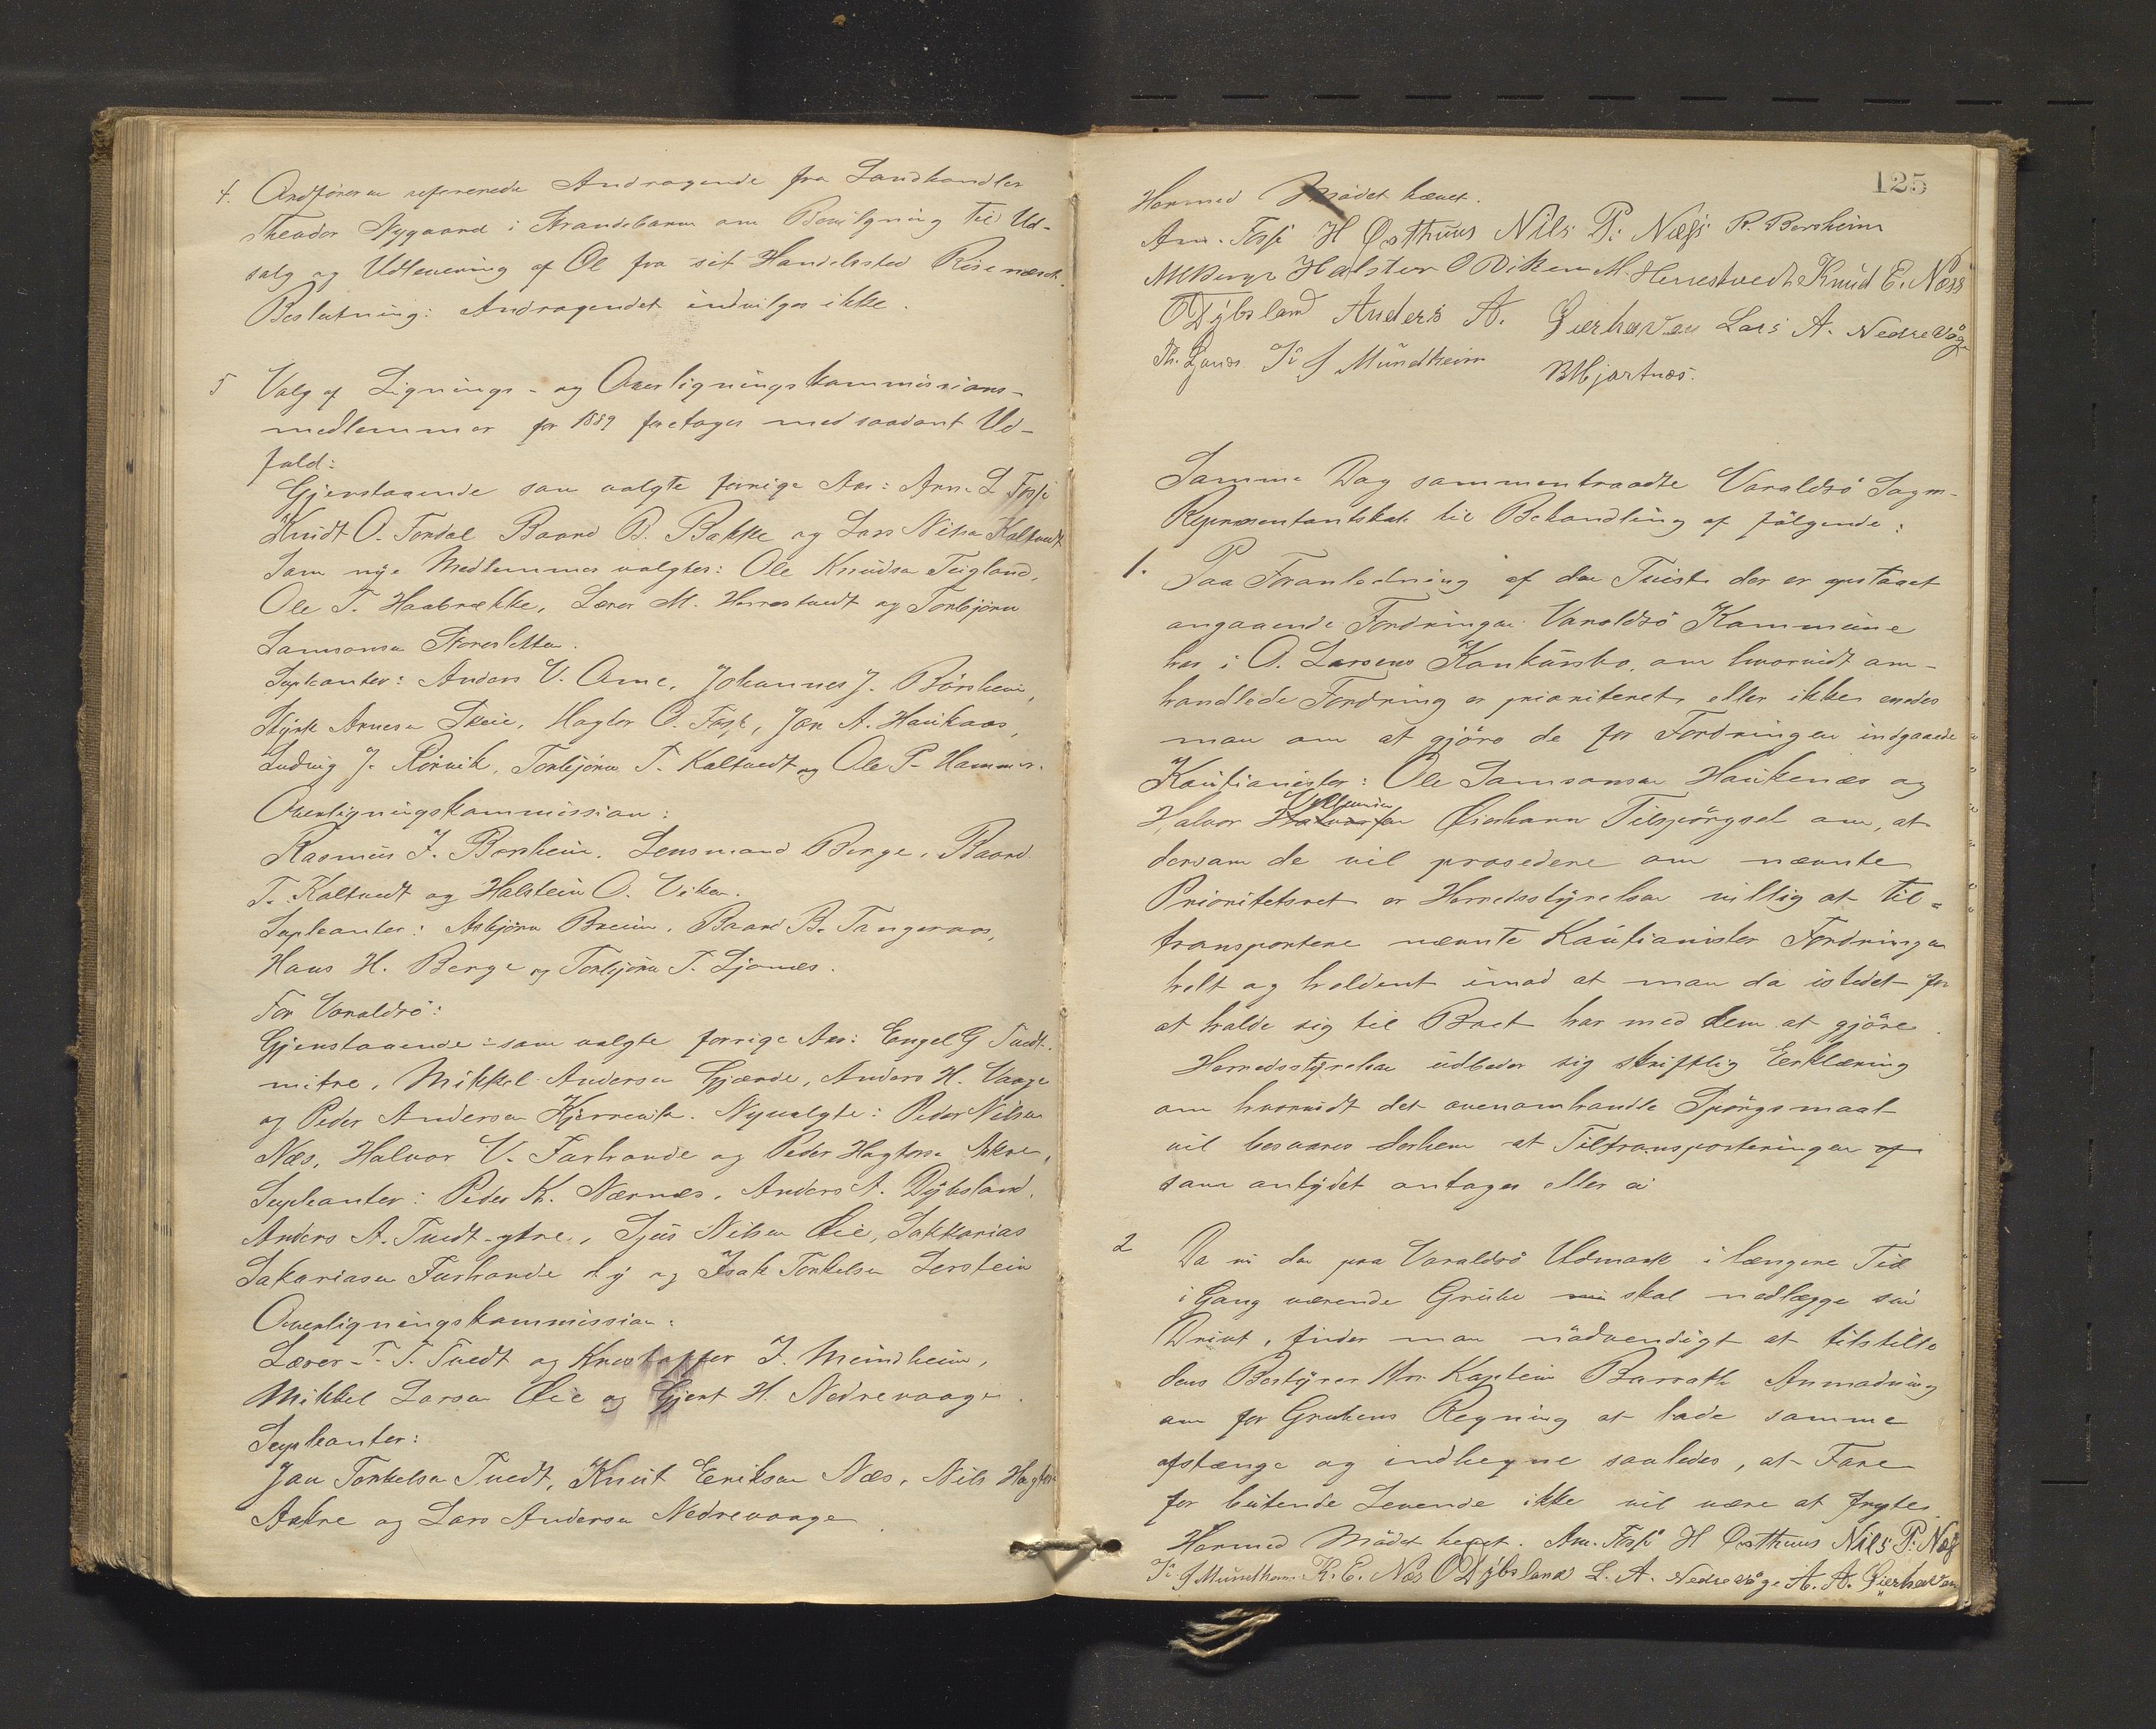 4. Ordføreren refererede Andragende fra Landhandler
Theodor Nygaard i Strandebarm om Bevilgning til Ud-
salg og Udlevering af Øl fra sit Handelssted Risenæset.
Beslutning: Andragendet indvilges ikke.
5 Valg af Lignings- og Overligningskommissions-
medlemmer for 1889 foretages med saadant Ud-
fald:
Gjenstaaende som valgte forrige Aar: Arne L Fosse
Knudt O. Fondal Baard B. Bakke og Lars Nilsen Kaltvedt
Som nye Medlemmer valgtes: Ole Knudsen Teigland,
Ole T. Haabrekke, Lærer M. Herrestvedt og Torbjörn
Samsonsen Storesletten.
Supleanter: Anders V. Ome, Johannes J. Börsheim,
Styrk Arnesen Skeie, Hagtor O. Fosse, Jon A. Haukaas,
Ludvig J. Rörvik, Torbjörn T. Kaltvedt og Ole P. Hammer.
Overligningskommission:
Rasmus J. Børsheim, Lensmand Berge, Baard
T. Kaltvedt og Halstein O. Viken.
Supleanter: Asbjörn Breim, Baard B. Tangeraas,
Hans H. Berge og Torbjörn T. Ljones.
For Varaldsö:
Gjenstaaende som valgte forrige Aar: Engel G Tvedt-
mitre, Mikkel Andersen Gjærde, Anders H. Vaage
og Peder Andersen Kjerrevik. Nyvalgte: Peder Nilsen
Næs, Halvor V. Farhovde og Peder Hagtorsen Aakre,
Supleanter: Peder K. Nærnes, Anders A. Dybsland,
Anders A. Tvedt-ytre, Sjus Nilsen Øie, Sakkarias
Sakariasen Furhovde d. y og Isak Torkelsen Lerstein
Overligningskommission:
Lærer T. T. Tvedt og Kristoffer J. Mundheim,
Mikkel Larsen Øie og Gjert H. Nedrevaage.
Supleanter:
Jon Torkelsen Tvedt, Knut Eeriksen Næs, Nils Hagtorsen
Aakre og Lars Andersen Nedrevaage.
125
Hermed Mödet hævet.
Arn. Fosse H Østhuus Nils P. Næss R. Børsheim
M Berge Halsten O Viken M. Herrestvedt Knud E. Næss
O Dybsland Anders A. Øierhavn Lars A. Nedrevåge
Th. Ljones K J Mundheim B Hjartnæs.
Samme Dag sammentraadte Varaldsö Sogne-
Representantskab til Behandling af fölgende:
1. Paa Foranledning af den Tvist der er opstaaet
angaaende Fordringen Varaldsö Kommune
har i O. Larsens Konkursbo, om hvorvidt om-
handlede Fordring er prioriteret eller ikke enedes
man om at gjöre de for Fordringen indgaaede
Kautionister: Ole Samsonsen Haukenæs og
Halvor Halvorsen Øierhavn Tilspörgsel om, at
dersom de vil prosedere om nævnte
Prioritetsret er Herredsstyrelsen villig at til-
transportere nævnte Kautionister Fordringen
helt og holdent imod at man da istedet for
at holde sig til Boet har med dem at gjöre.
Herredsstyrelsen udbeder sig skriftlig Eerklæring
om hvorvidt det ovenomhandle Spörgsmaal
vil besvares derhen at Tiltransporteringen af
som antydet antages eller ei
2 Da nu den paa Varaldsö Udmark i længere Tid
i Gang værende Grube skal nedlægge sin
Drivt, finder man nödvendigt at tilstille
dens Bestyrer Hr. Kaptein Barrath Anmodning
om for Grubens Regning at lade samme
afstænge og indhegne saaledes, at Fare
for beitende Levende ikke vil være at frygte
Hermed Mödet hævet. Arn. Fosse H Østhuus Nils P. Næss
K J Mundheim K. E. Næs O Dybsland L. A. Nedrevåge A. A. Øierhavn